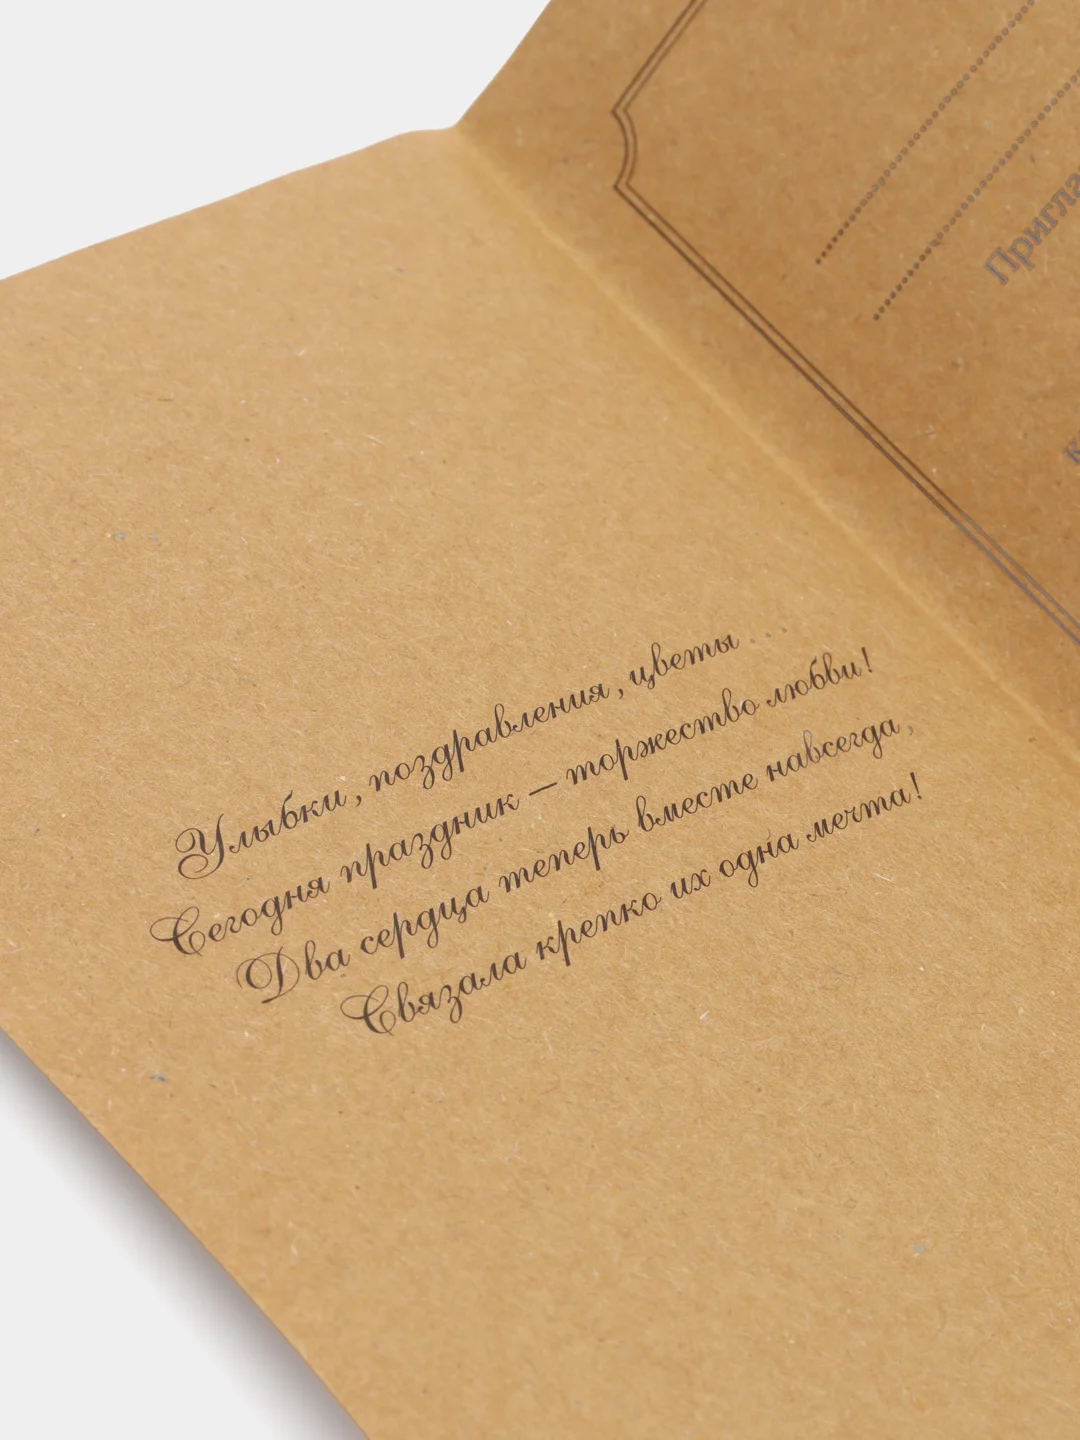 Улыбки, поздравления, цветы ...
Сегодня праздник – торжество любви!
Два сердца теперь вместе навсегда,
Связала крепко их одна мечта!